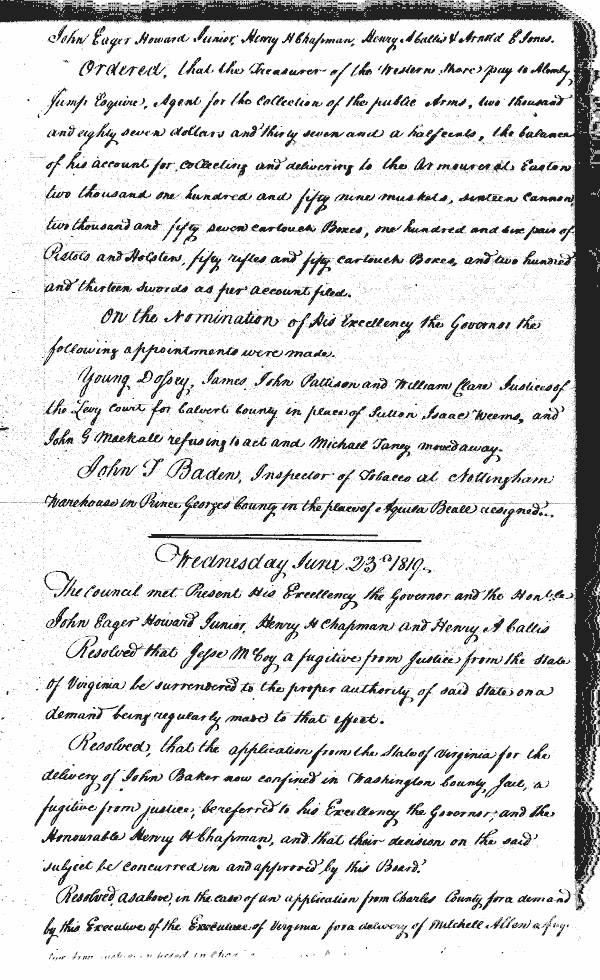 John Eager Howard Junior, Henry H Chapman, Henry A Callis & Arnold E Jones.
Ordered, that the Treasurer of the Western Shore pay to Alemby
Jump Esquire, Agent for the Collection of the public Arms, two thousand
and eighty seven dollars and thirty seven and a half cents, the balance
of his account for collecting and delivering to the Armourer at Easton
two thousand one hundred and fifty nine muskets, sixteen Cannon,
two thousand and fifty seven cartouch Boxes, one hundred and six pair of
Pistols and Holsters, fifty rifles and fifty cartouch Boxes, and two hundred
and thirteen swords as per account filed.
On the Nomination of His Excellency the Governor the
following appointments were made.
Young Dossey, James John Pattison and William Clare Justices of
the Levy Court for Calvert County in place of Sutton Isaac Weems, and
John G Mackall refusing to act and Michael Taney moved away.
John T Baden, Inspector of Tobacco at Nottingham
Warehouse in Prince Georges County in the place of Aquila Beall resigned.
Wednesday June 23rd 1819.
The Council met Present His Excellency the Governor and the Honble
John Eager Howard Junior, Henry H Chapman and Henry A Callis
Resolved that Jesse McCoy a fugitive from Justice from the State
of Virginia be surrendered to the proper authority of said State on a
demand being regularly made to that effect.
Resolved, that the application from the State of Virginia for the
delivery of John Baker now confined in Washington County Jail, a
fugitive from justice, be referred to his Excellency the Governor, and the
Honourable Henry H Chapman, and that their decision on the said
subject be concurred in and approved by this Board.
Resolved as above, in the case of an application from Charles County for a demand
by this Executive of the Executive of Virginia for a delivery of Mitchell Allen a fug-